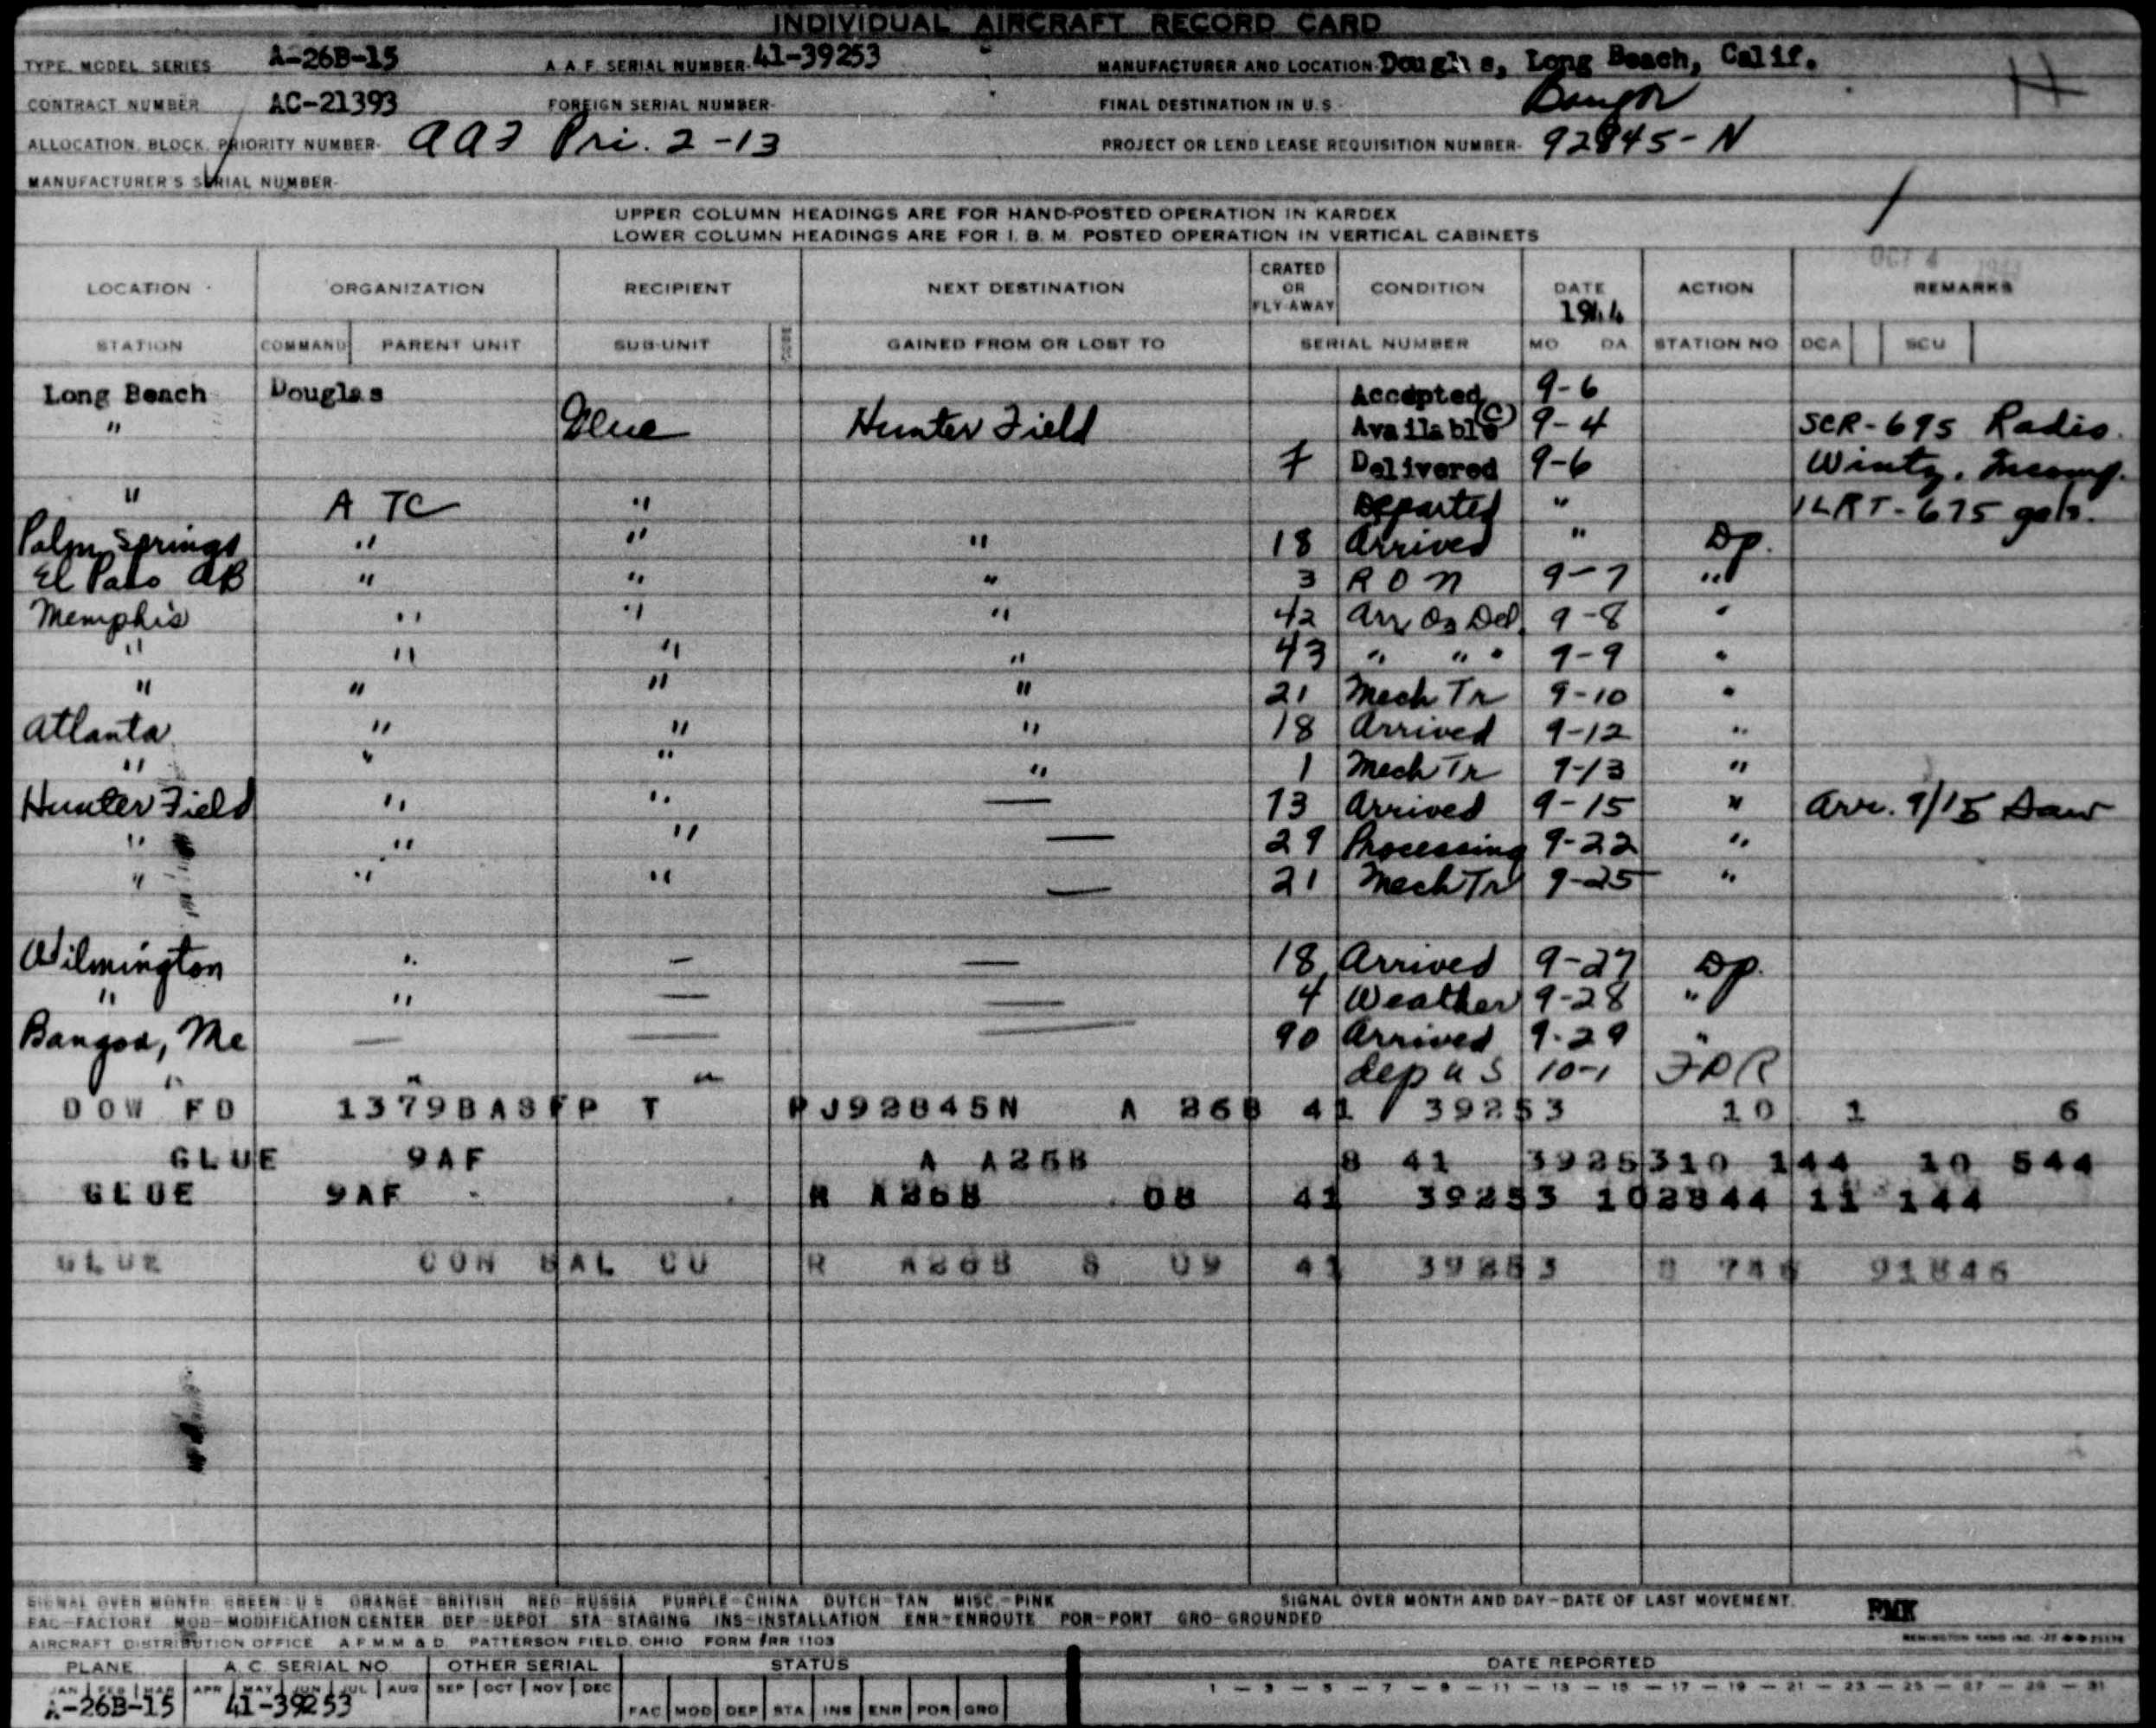 INDIVIDUAL AIRCRAFT RECORD CARD
TYPE, MODEL, SERIES A-26B-15 A. A. F. SERIAL NUMBER- 41-39253 MANUFACTURER AND LOCATION- Dougl s, Long Beach, Calif.
CONTRACT NUMBER AC-21393 FOREIGN SERIAL NUMBER- FINAL DESTINATION IN U.S.- Bangor
ALLOCATION, BLOCK, PRIORITY NUMBER- AAF Pri. 2-13 PROJECT OR LEND LEASE REQUISITION NUMBER- 92845-N
MANUFACTURER'S SERIAL NUMBER-
UPPER COLUMN HEADINGS ARE FOR HAND-POSTED OPERATION IN KARDEX
LOWER COLUMN HEADINGS ARE FOR I. B. M. POSTED OPERATION IN VERTICAL CABINETS
OCT 4
LOCATION ORGANIZATION RECIPIENT NEXT DESTINATION CRATED OR FLY-AWAY CONDITION DATE 1944 ACTION REMARKS
STATION COMMAND PARENT UNIT SUB-UNIT GAINED FROM OR LOST TO SERIAL NUMBER MO DA STATION NO DCA SCU
Long Beach Douglas Accepted 9-6
" Glue Hunter Field Available (C) 9-4 SCR-695 Radio.
F Delivered 9-6 Wintz. Incomp.
" ATC " Departed " 1LRT-675 gals.
Palm Springs " " " 18 Arrived " Dp.
El Paso AB " " " 3 RON 9-7 "
Memphis " " " 42 Arr Oz Del. 9-8 "
" " " " 43 " " " 9-9 "
" " " " 21 Mech Tr 9-10 "
Atlanta " " " 18 Arrived 9-12 "
" " " " 1 Mech Tr 9-13 "
Hunter Field " " — 73 Arrived 9-15 " Arr. 9/15 Saw
" " " — 29 Processing 9-22 "
" " " — 21 Mech Tr 9-25 "
Wilmington " — — 18 Arrived 9-27 Dp.
" " — — 4 Weather 9-28 "
Bangor, Me — — — 90 Arrived 9-29 "
" " " dep U S 10-1 FDR
DOW FD 1379BASFP T PJ92845N A 26B 41 39253 10 1 6
GLUE 9AF A A26B 8 41 3925310 144 10 544
GLUE 9AF R A26B 08 41 39253 102844 11 144
GLUE CON SAL CU R A26B S 09 41 39253 8 746 91846
SIGNAL OVER MONTH GREEN-U S ORANGE-BRITISH RED-RUSSIA PURPLE-CHINA DUTCH-TAN MISC.-PINK SIGNAL OVER MONTH AND DAY-DATE OF LAST MOVEMENT.
FAC-FACTORY MOD-MODIFICATION CENTER DEP-DEPOT STA-STAGING INS-INSTALLATION ENR-ENROUTE POR-PORT GRO-GROUNDED RMK
AIRCRAFT DISTRIBUTION OFFICE A.F.M.M & D. PATTERSON FIELD, OHIO FORM #RR 1103
PLANE A. C. SERIAL NO OTHER SERIAL STATUS DATE REPORTED
JAN FEB MAR APR MAY JUN JUL AUG SEP OCT NOV DEC 1 — 3 — 5 — 7 — 9 — 11 — 13 — 15 — 17 — 19 — 21 — 23 — 25 — 27 — 29 — 31
A-26B-15 41-39253 FAC MOD DEP STA INS ENR POR GRO